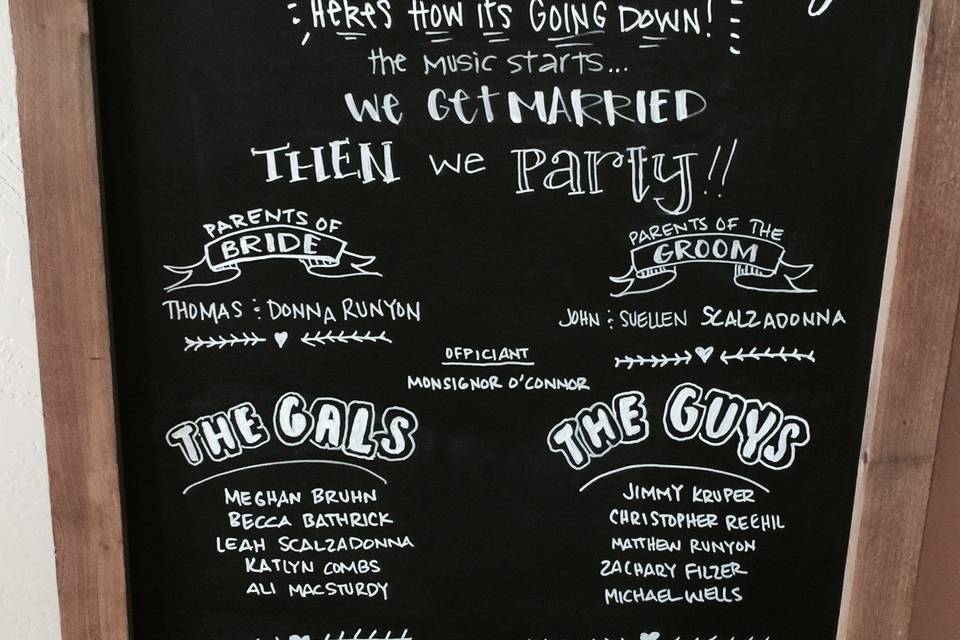 HERE'S HOW IT'S GOING DOWN!
the MUSIC starts...
we Get MARRIED
THEN we Party!!
PARENTS OF
BRIDE
THOMAS : DONNA RUNYON
PARENTS OF THE
GROOM
JOHN : SUELLEN SCALZADONNA
OFFICIANT
MONSIGNOR O'CONNOR
THE GALS
MEGHAN BRUHN
BECCA BATHRICK
LEAH SCALZADONNA
KATLYN COMBS
ALI MACSTURDY
THE GUYS
JIMMY KRUPER
CHRISTOPHER REEHIL
MATTHEW RUNYON
ZACHARY FILZER
MICHAEL WELLS